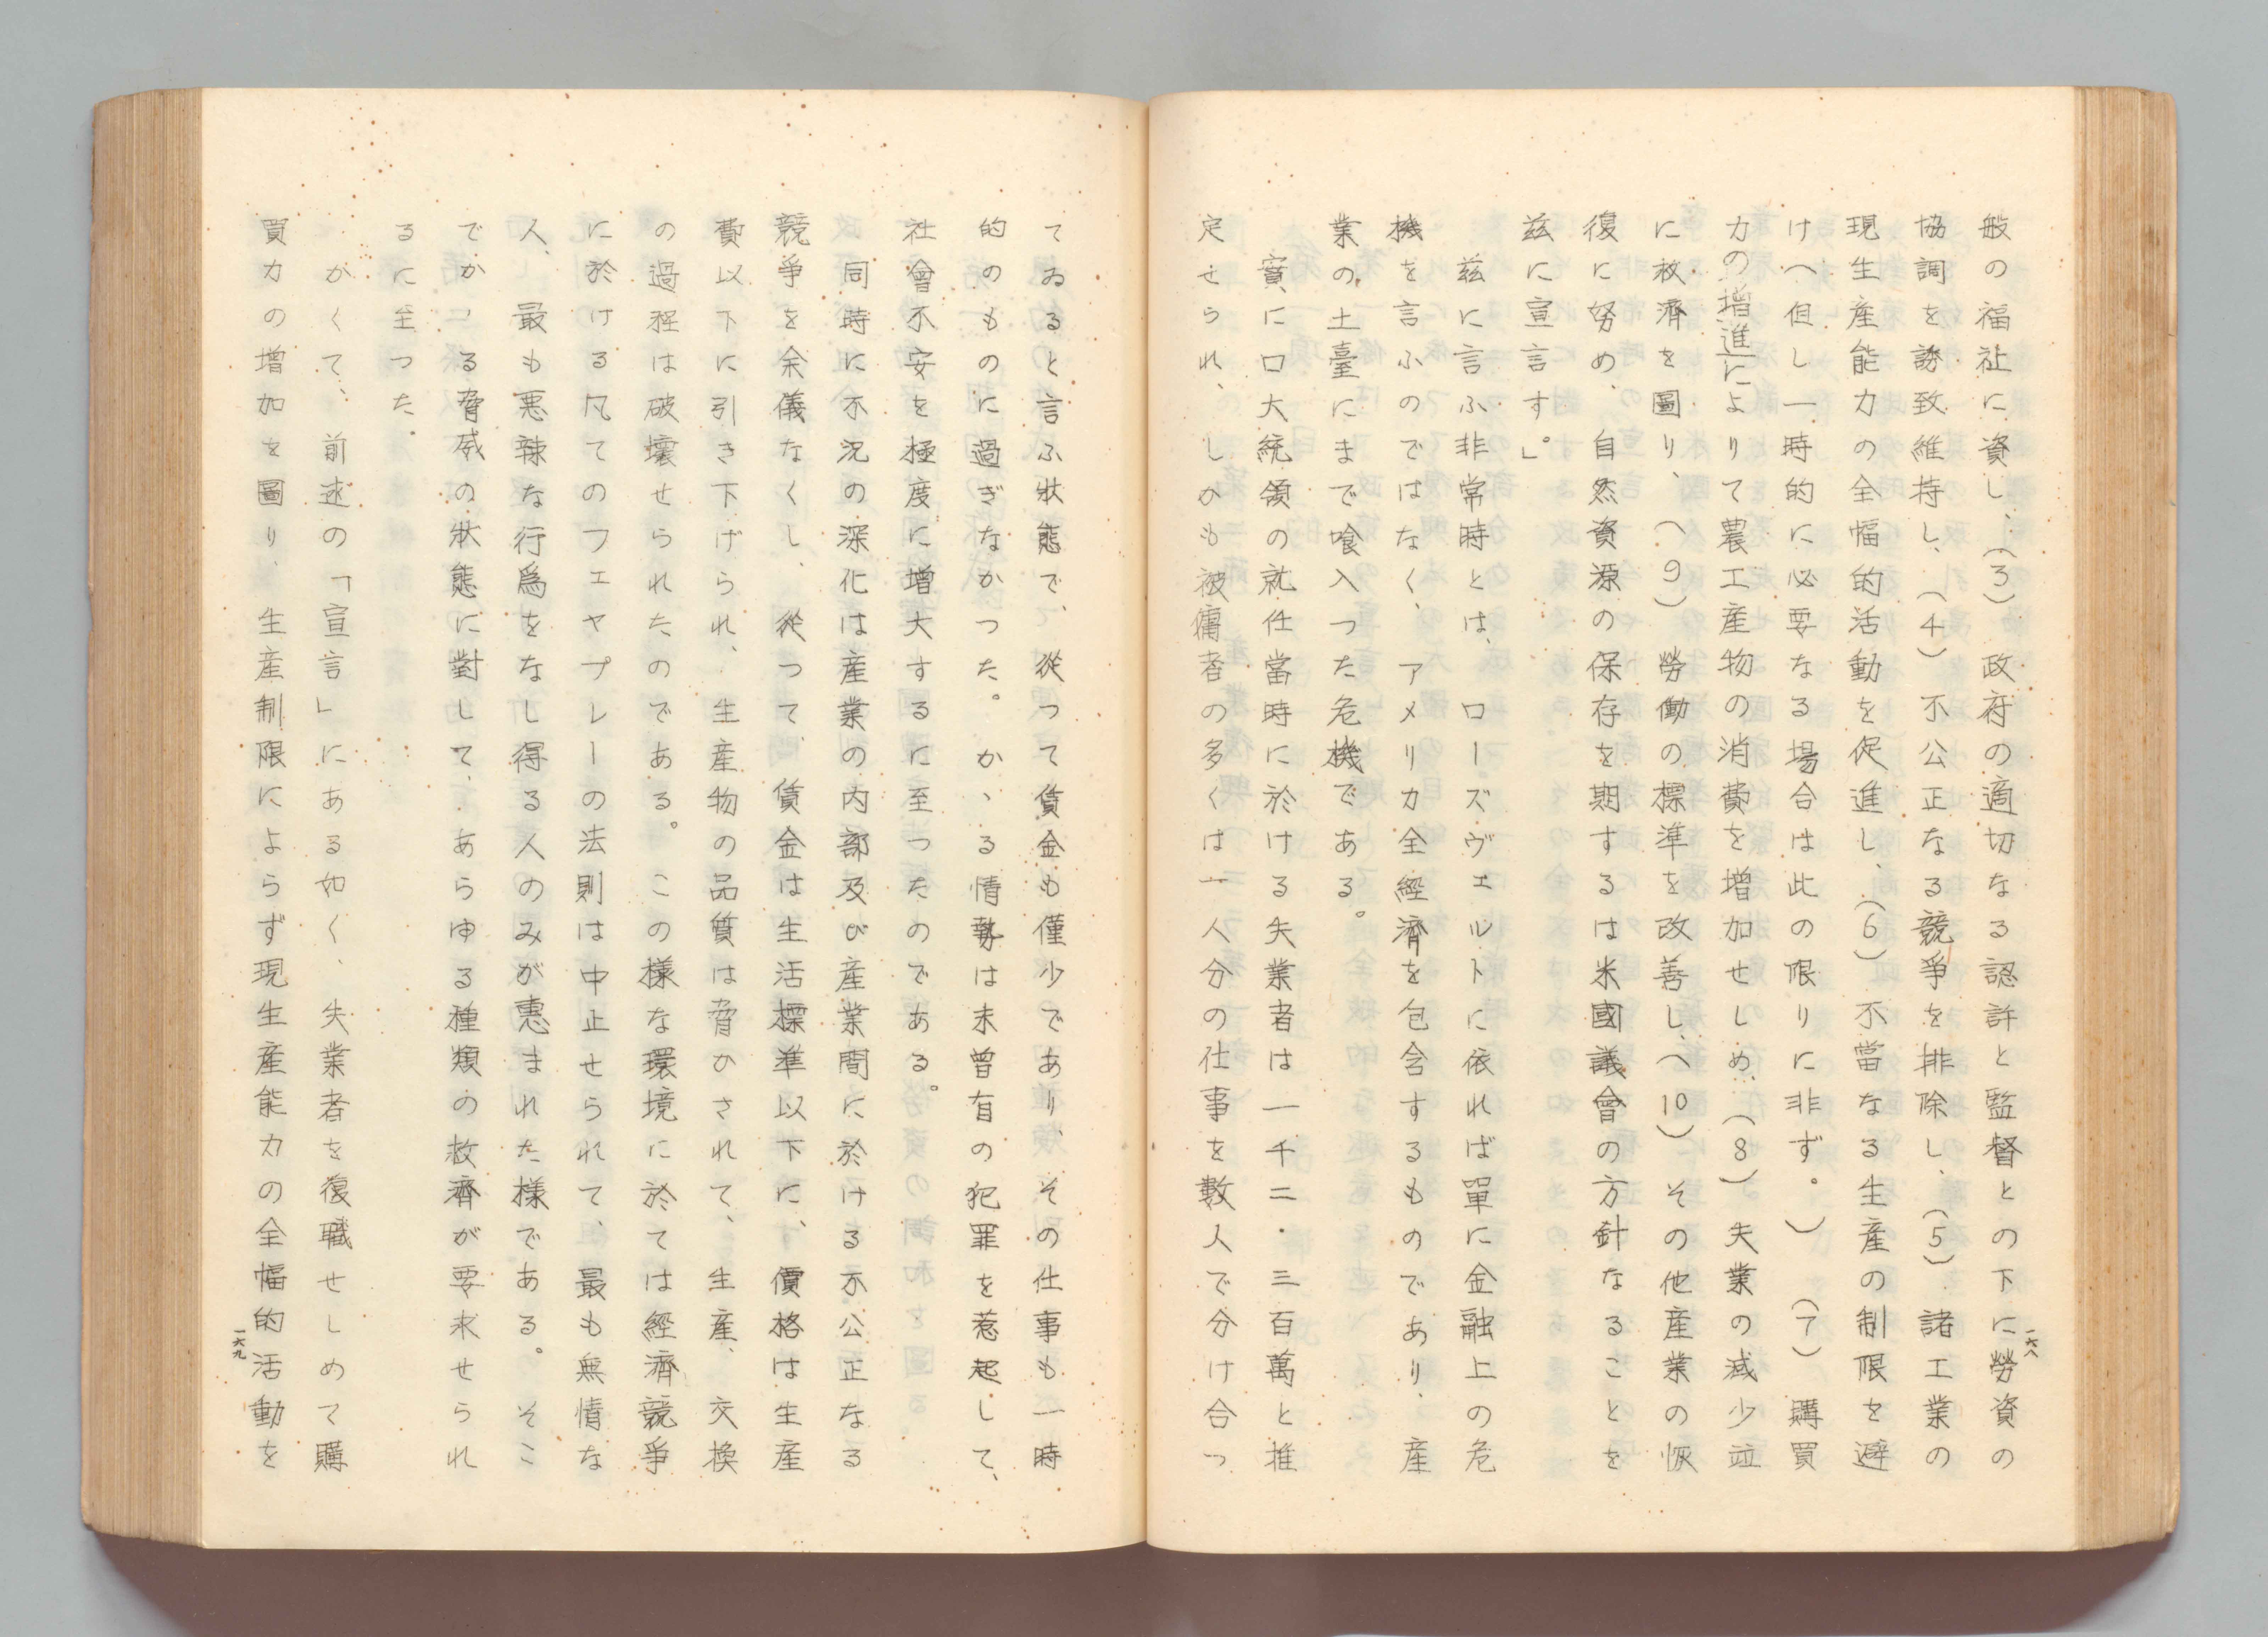 般の福祉に資し、（3）政府の適切なる認許と監督との下に勞資の
協調を誘致維持し、（4）不公正なる競爭を排除し、（5）諸工業の
現生産能力の全幅的活動を促進し、（6）不當なる生産の制限を避
け（但し一時的に必要なる場合は此の限りに非ず。）（7）購買
力の増進によりて農工産物の消費を増加せしめ、（8）失業の減少竝
に救濟を圖り、（9）勞働の標準を改善し、（10）その他産業の恢
復に努め、自然資源の保存を期するは米國議會の方針なることを
玆に宣言す。」
玆に言ふ非常時とは、ローズヴェルトに依れば單に金融上の危
機を言ふのではなく、アメリカ全經濟を包含するものであり、産
業の土臺にまで喰入つた危機である。
實にロ大統領の就任當時に於ける失業者は一千二・三百萬と推
定せられ、しかも被傭者の多くは一人分の仕事を數人で分け合つ
一六八
てゐると言ふ狀態で、從つて賃金も僅少であり、その仕事も一時
的のものに過ぎなかつた。かゝる情勢は未曾有の犯罪を惹起して、
社會不安を極度に增大するに至つたのである。
同時に不況の深化は産業の内部及び産業間に於ける不公正なる
競爭を余儀なくし、從つて、賃金は生活標準以下に、價格は生産
費以下に引き下げられ、生産物の品質は脅かされて、生産、交換
の過程は破壞せられたのである。この樣な環境に於ては經濟競爭
に於ける凡てのフェヤプレーの法則は中止せられて、最も無情な
人、最も悪辣な行爲をなし得る人のみが惠まれた樣である。そこ
でかゝる脅威の狀態に對して、あらゆる種類の救濟が要求せられ
るに至つた。
かくて、前述の「宣言」にある如く、失業者を復職せしめて購
買力の増加を圖り、生産制限によらず現生産能力の全幅的活動を
一六九